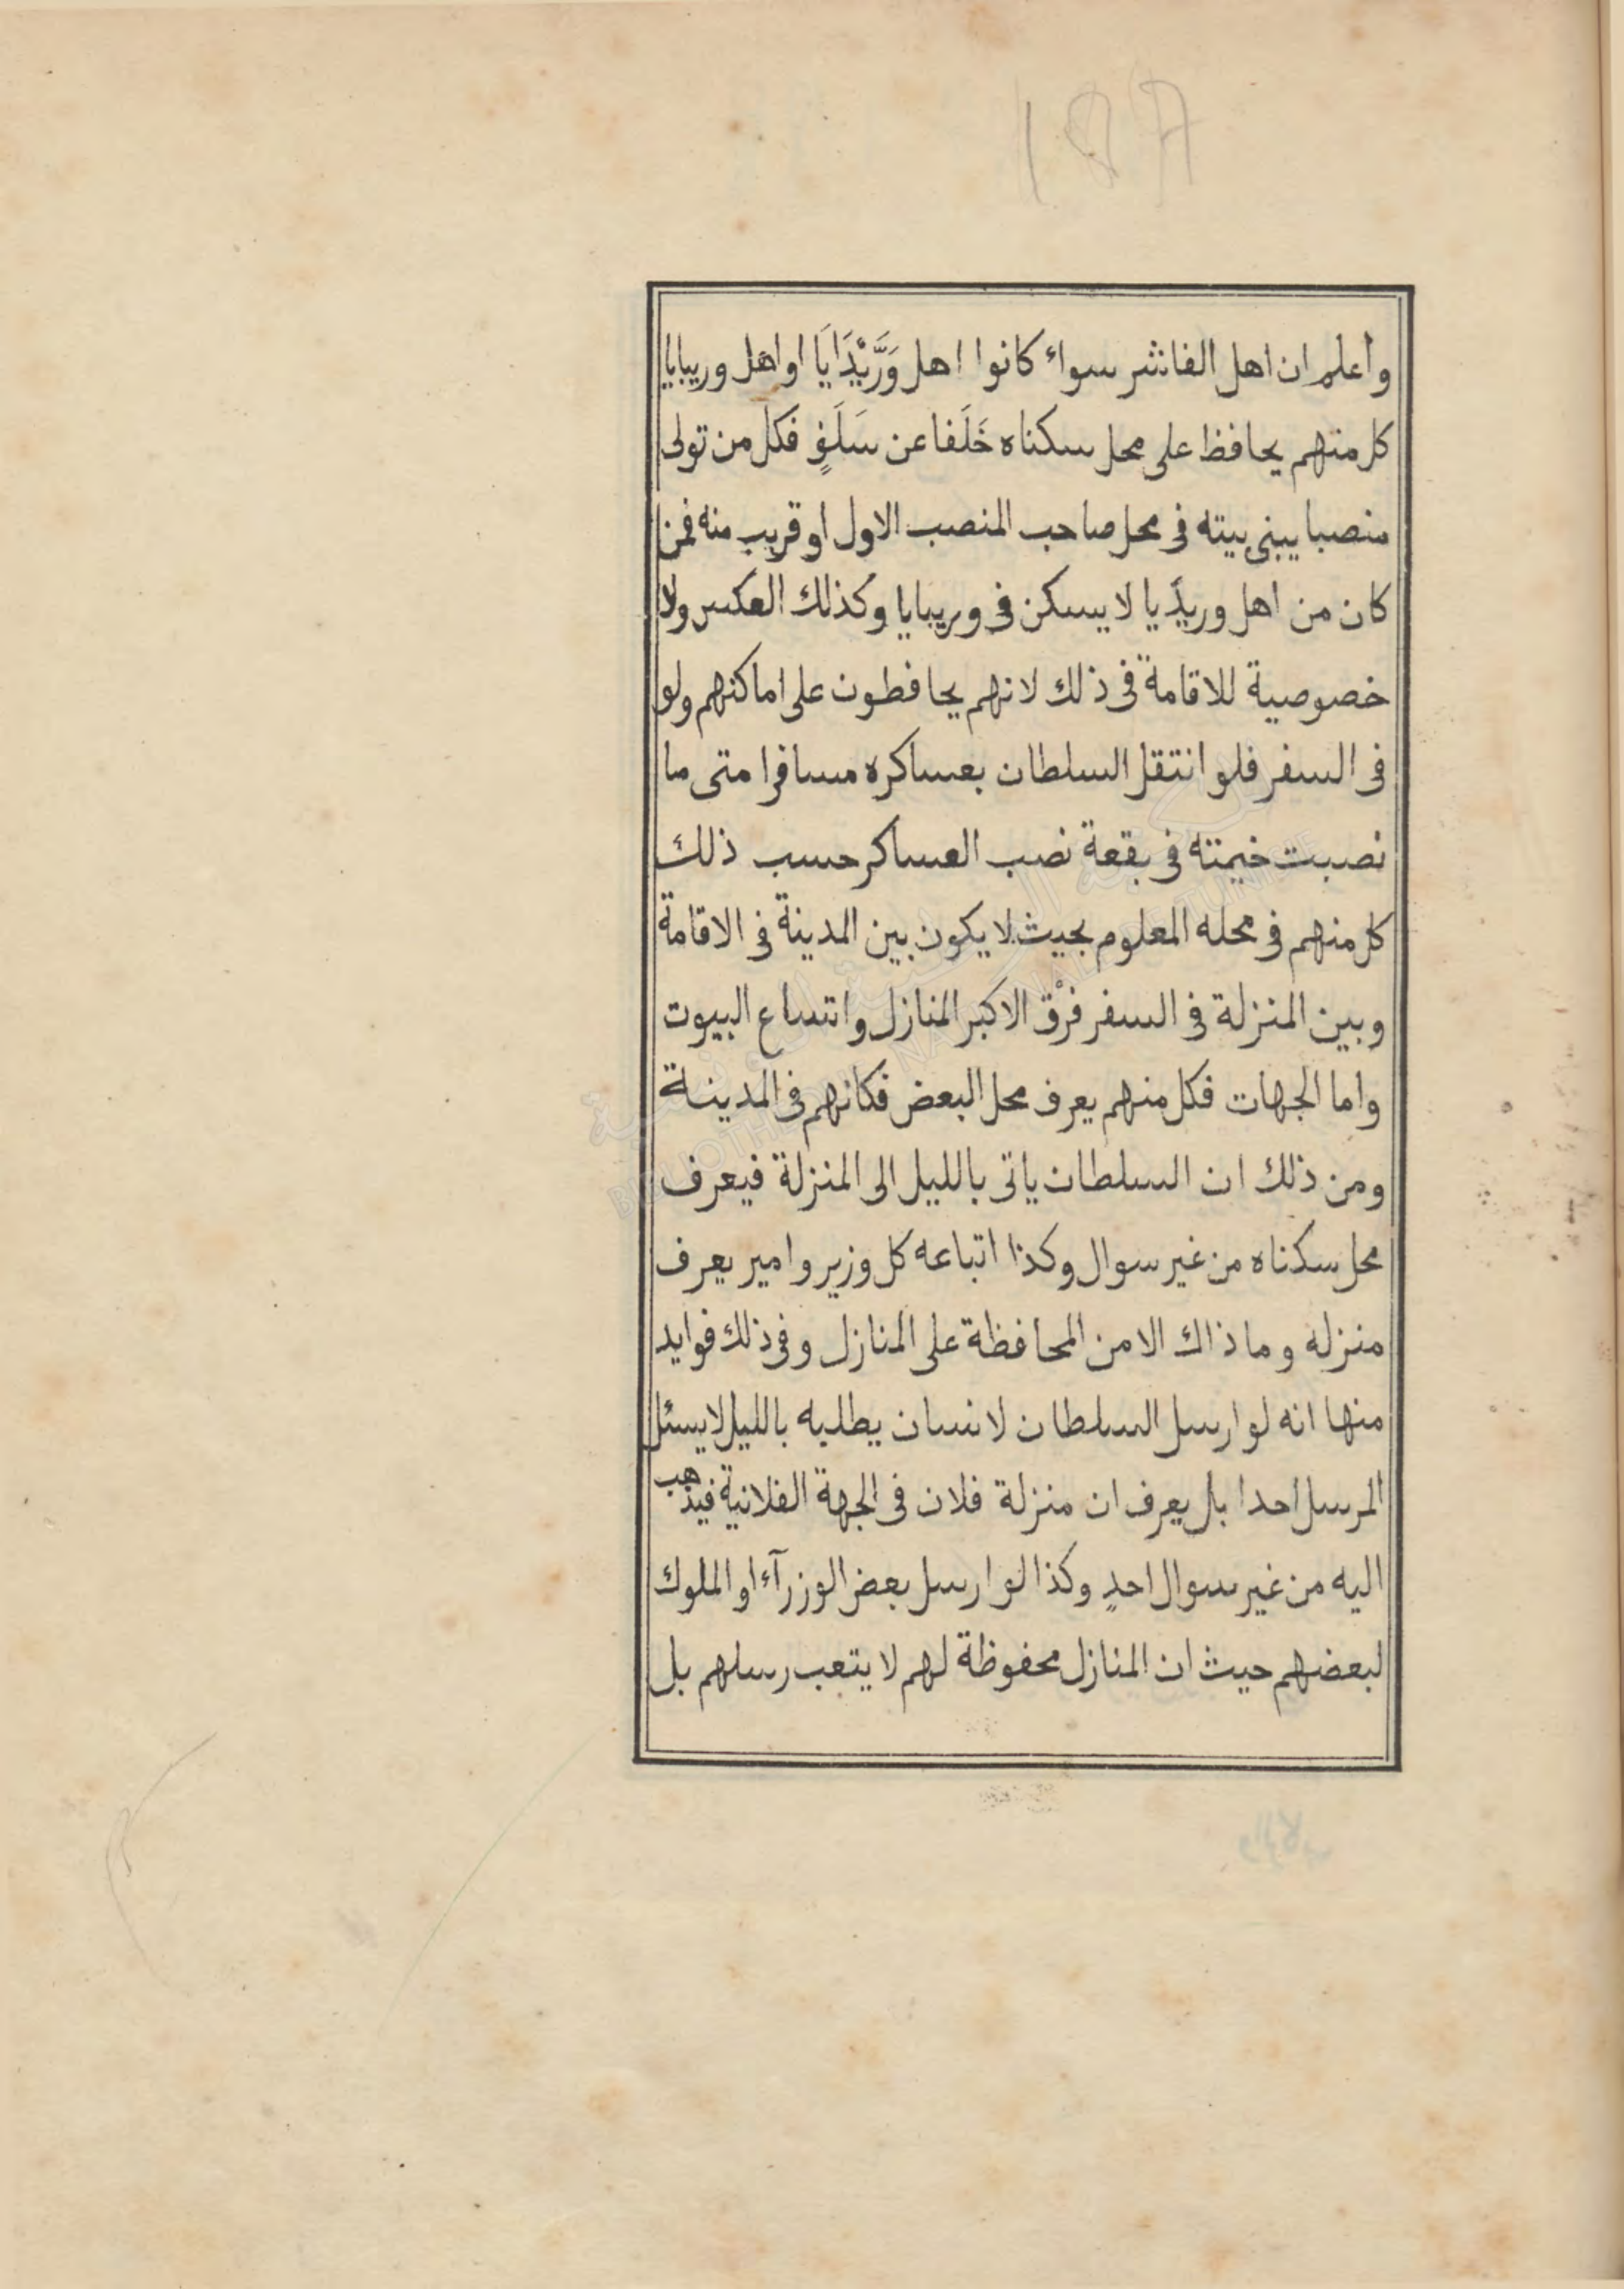 واعلم ان اهل الفاشر سواء كانوا اهل وَرَّيْدَايَا او اهل وريبايا
كل منهم يحافظ على محل سكناه خَلَفا عن سَلَفٍ فكل من تولى
منصبا يبنى بيته فى محل صاحب المنصب الاول او قريب منه فمن
كان من اهل وريدَيا لا يسكن فى وريبايا وكذلك العكس ولا
خصوصية للاقامة فى ذلك لانهم يحافطون على اماكنهم ولو
فى السفر فلو انتقل السلطان بعساكره مسافرا متى ما
نصبت خيمته فى بقعة نصب العساكر حسب ذلك
كل منهم فى محله المعلوم بحيث لا يكون بين المدينة فى الاقامة
وبين المنزلة فى السفر فرْق الا كبر المنازل واتساع البيوت
واما الجهات فكل منهم يعرف محل البعض فكانهم فى المدينة
ومن ذلك ان السلطان ياتى بالليل الى المنزلة فيعرف
محل سكناه من غير سوال وكذا اتباعه كل وزير وامير يعرف
منزله وما ذاك الا من المحافظة على المنازل وفى ذلك فوايد
منها انه لو ارسل السلطان لانسان يطلبه بالليل لا يسئل
المرسل احدا بل يعرف ان منزلة فلان فى الجهة الفلانية فيذهب
اليه من غير سوال احدٍ وكذا لو ارسل بعض الوزرآء او الملوك
لبعضهم حيث ان المنازل محفوظة لهم لا يتعب رسلهم بل